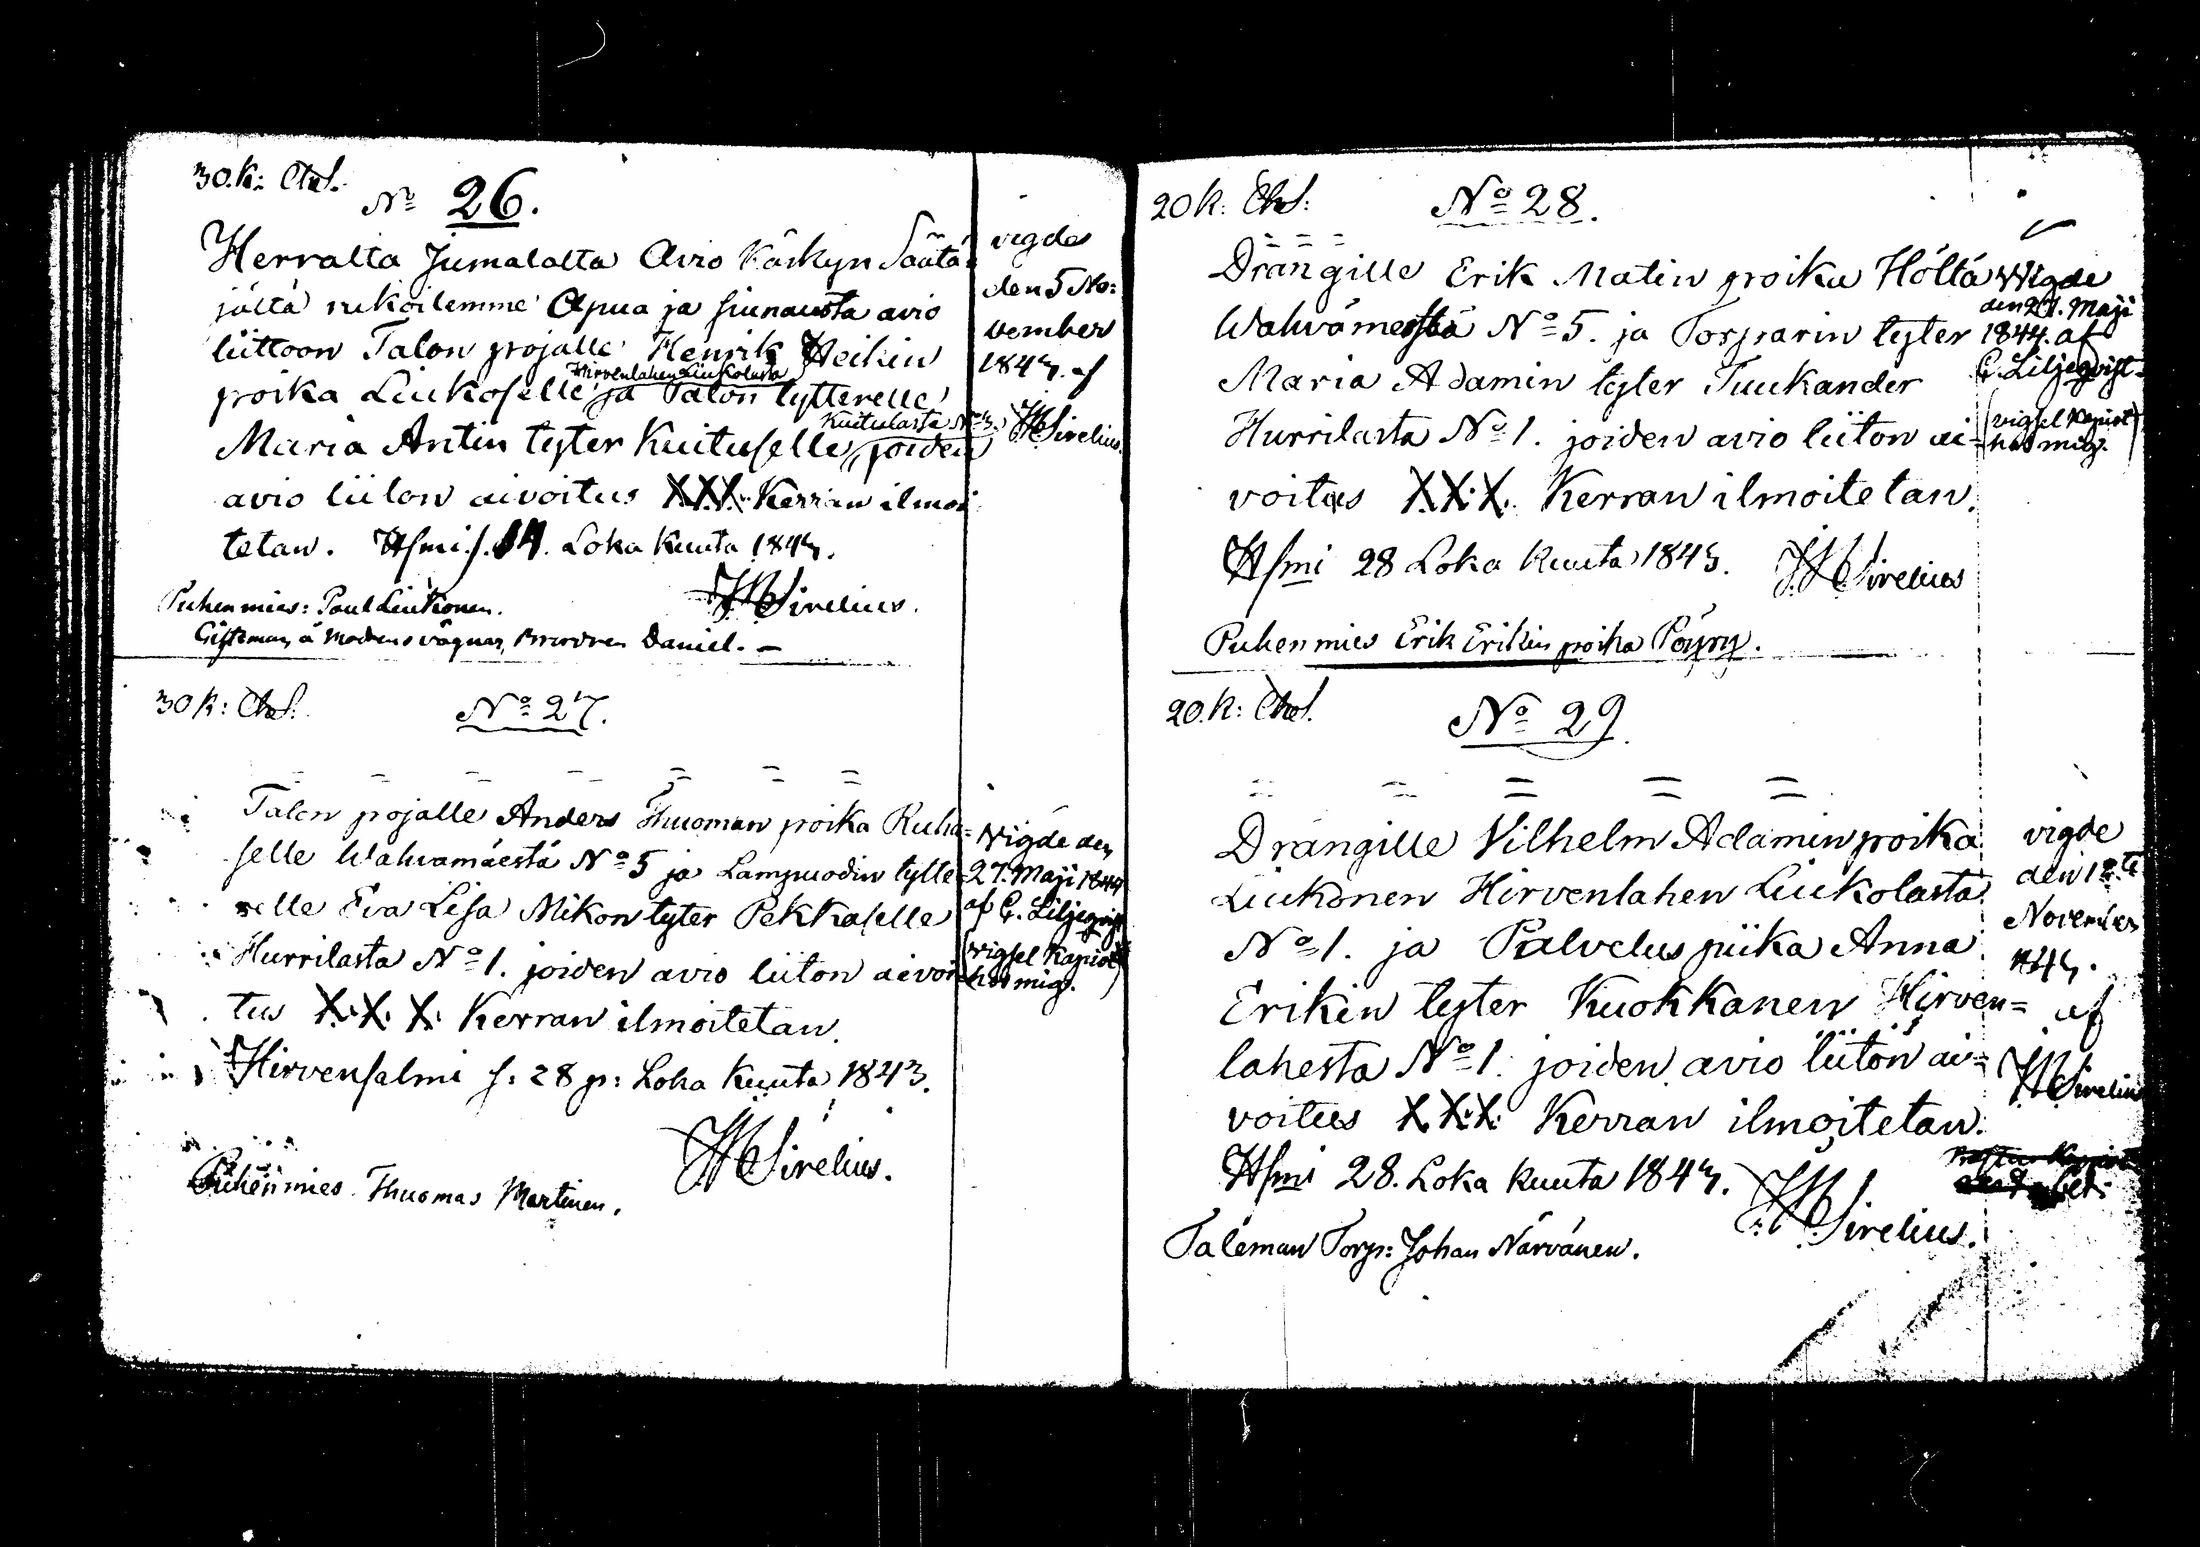 30.k: Chs.
No 26.
Herralta Jumalalta Avio käskyn Säätä=
jältä rukoilemme Apua ja siunausta avio
liittoon Talon pojalle Henrik Heikin
Hirvenlahen Liukolasta
poika Liukoselle ja Talon tytterelle
Kuitulasta No 3.
Maria Antin tyter Kuituselle, joiden
avio liiton aivoitus X.X.X. Kerran ilmoi
tetan. Hsmi. s. 14. Loka Kuuta 1843.
HSirelius.
Puhenmies: Paul Liukonen.
Giftoman, å Modrens vägnar, Brodren Daniel. —
vigde
den 5 No:
vember
1843. af
HSirelius.
30 k: Chs.
No 27.
Talon pojalle Anders Thuoman poika Ruha=
selle Wahvamäestä No 5 ja Lampuodin tytte
relle Eva Lisa Mikon tyter Pekkaselle
Hurrilasta No 1. joiden avio liiton aivoi
tus X. X. X. Kerran ilmoitetan.
Hirvensalmi s: 28 p: Loka Kuuta 1843.
HSirelius.
Puhenmies Thuomas Martinen.
Vigde den
27. Maji 1844
af G. Liljeqvist
(vigsel Kapiot
hos mig.)
20 k: Chs:
No 28.
Drängille Erik Matin poika Hölttä
Wahvämestä No 5. ja Torpparin tyter
Maria Adamin tyter Tuukander
Hurrilasta No 1. joiden avio liiton ai=
voitus X.X.X. Kerran ilmoitetan.
Hsmi 28 Loka Kuuta 1843.
HSirelius
Puhenmies Erik Erikin poika Pöyry.
Wigde
den 27. Maji
1844. af
G. Liljeqvist
(vigsel Kapiot
hos mig.)
20. k: Chs.
No 29.
Drängille Vilhelm Adamin poika
Liukonen Hirvenlahen Liukolasta
No 1. ja Palvelus piika Anna
Erikin tyter Kuokkanen Hirven=
lahesta No 1. joiden avio liiton ai=
voitus X.X.X. Kerran ilmoitetan.
Hsmi 28. Loka kuuta 1843.
HSirelius.
Taleman Torp: Johan Närvänen.
vigde
den 12te
November
1843.
af
HSirelius